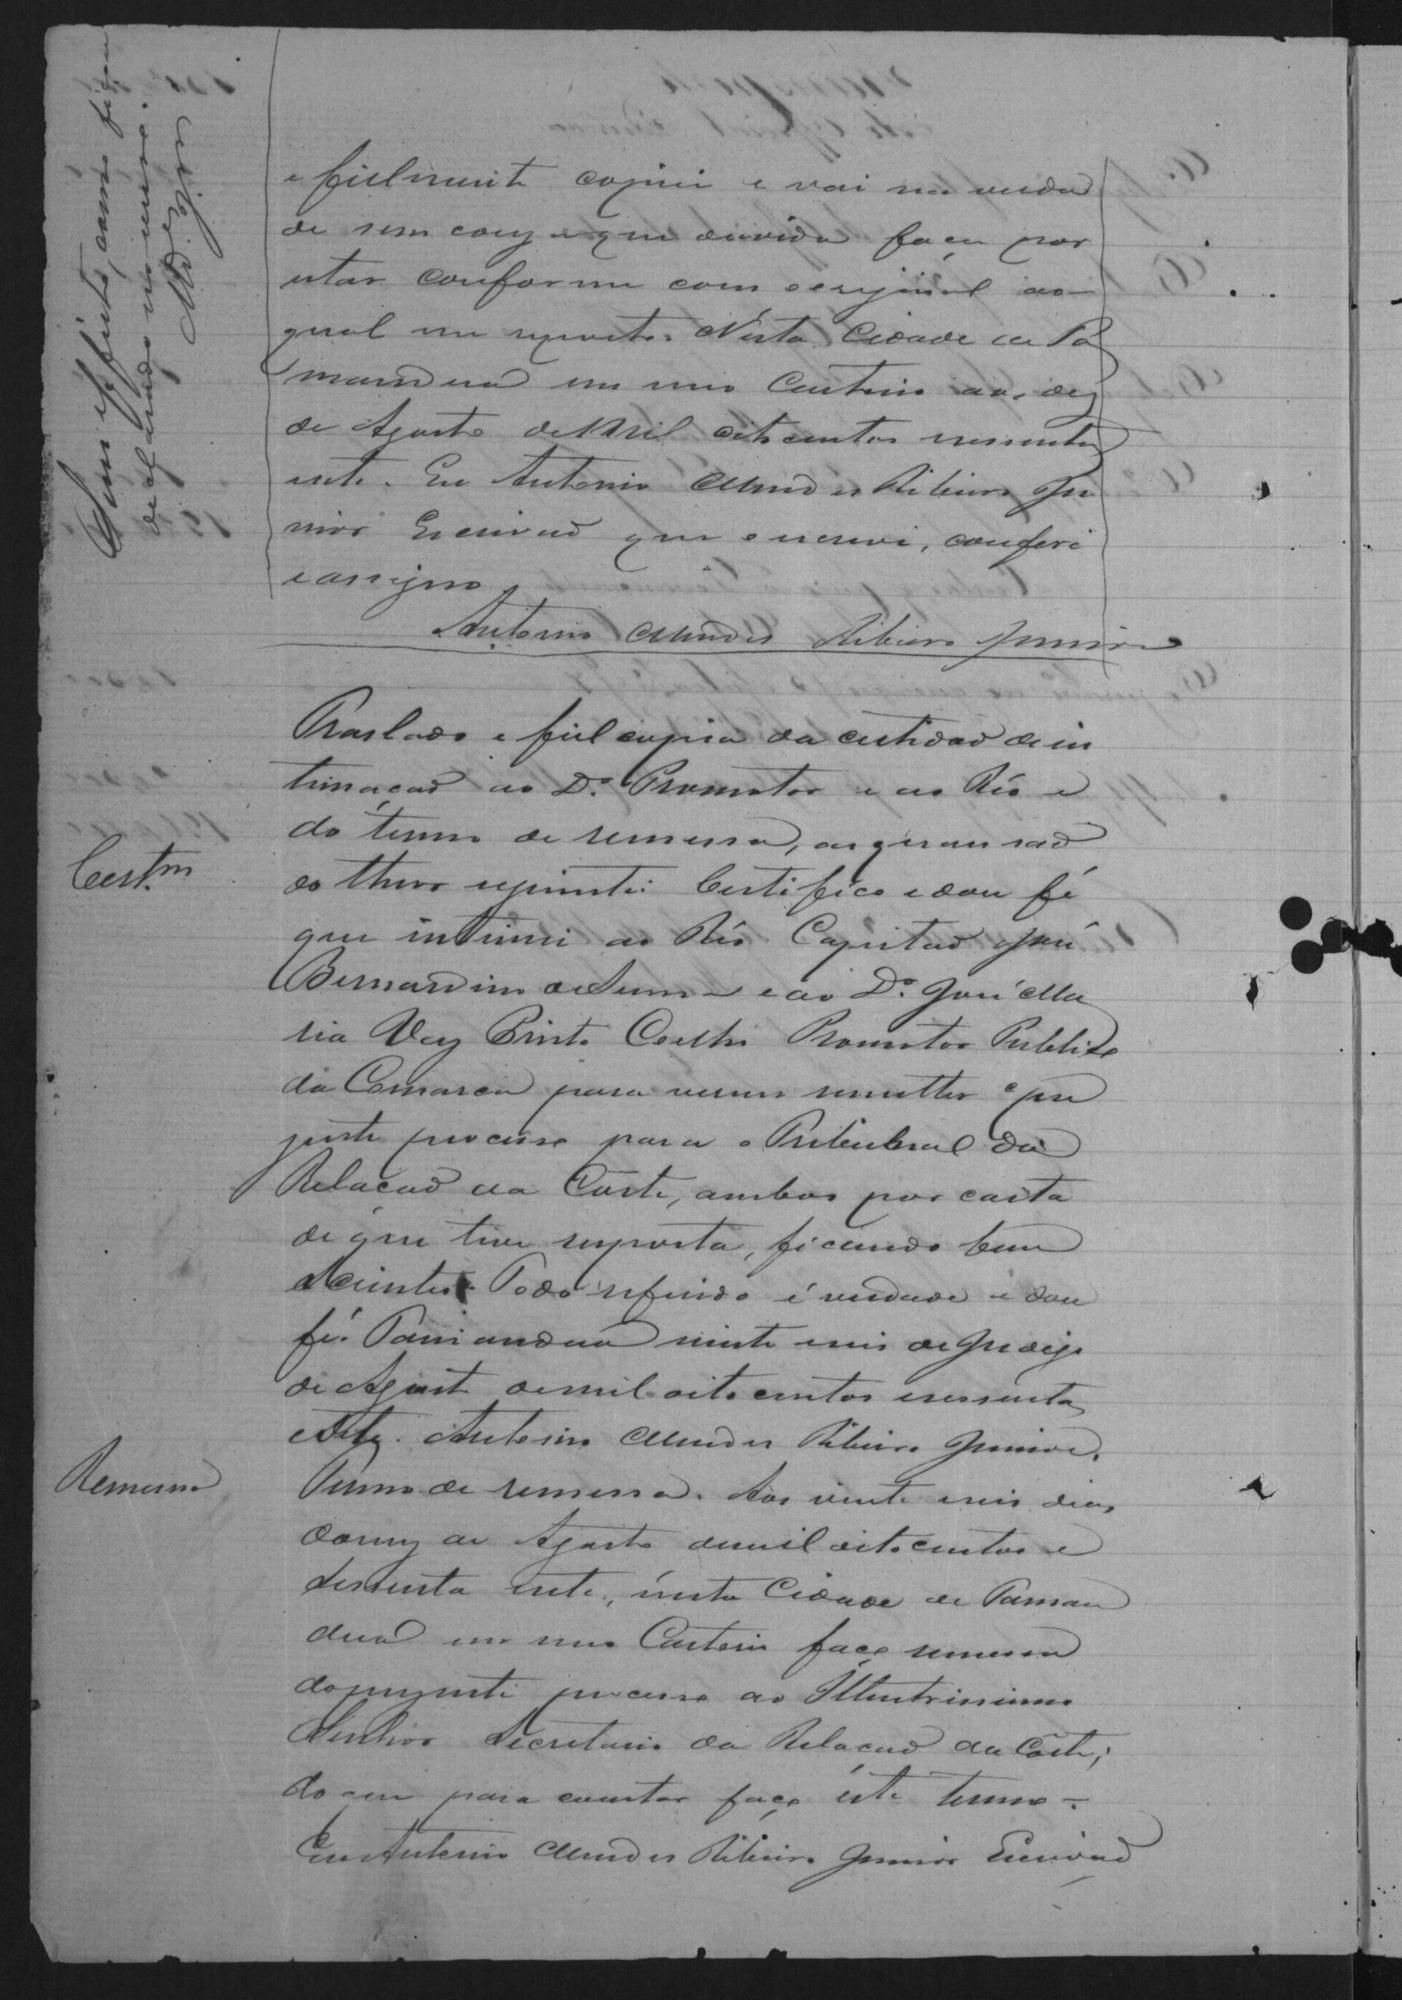 Sem effeito, como fica
declarado no verso.
M.des Jor.
e fielmente copiei e vai na verda
de sem couza que duvida faça por
estar conforme com o original ao
qual me reporto. Nesta Cidade de Ta
manduá em meu Cartorio aos dez
de Agosto de Mil oito centos sessenta
esete. Eu Antonio Mendes Ribeiro Ju
nior Escrivaõ que o escrevi, conferi
e assigno
Antonio Mendes Ribeiro Junior
Traslado e fiel copia da certidaõ de in
timaçaõ ao D.or Promotor e ao Réo e
do termo de remessa, as quaes saõ
Cert.am
do theor seguinte: Certifico e dou fé
que intimei ao Réo Capitaõ José
Bernardino de Senna e ao D.or José Ma
ria Vaz Pinto Coelho Promotor Publico
da Comarca para verem remetter o pre
zente processo para o Tribubral da
Relaçaõ da Côrte, ambos por carta
de que tive resposta, ficando bem
scientes. Todo referido é verdade e dou
fé. Tamanduá vinte e seis de digo
de Agosto de mil oito centos e sessenta
e sete. Antonio Mendes Ribeiro Junior.
Remessa
Termo de remessa. Aos vinte e seis dias
do mez de Agosto de mil oito centos e
sessenta e sete, nesta Cidade de Taman
duá em meu Cartorio faço remessa
do prezente processo ao Illustrissimo
Senhor Secretario da Relaçaõ da Côrte;
do que para constar faço este termo.
Eu Antonio Mendes Ribeiro Junior Escrivaõ